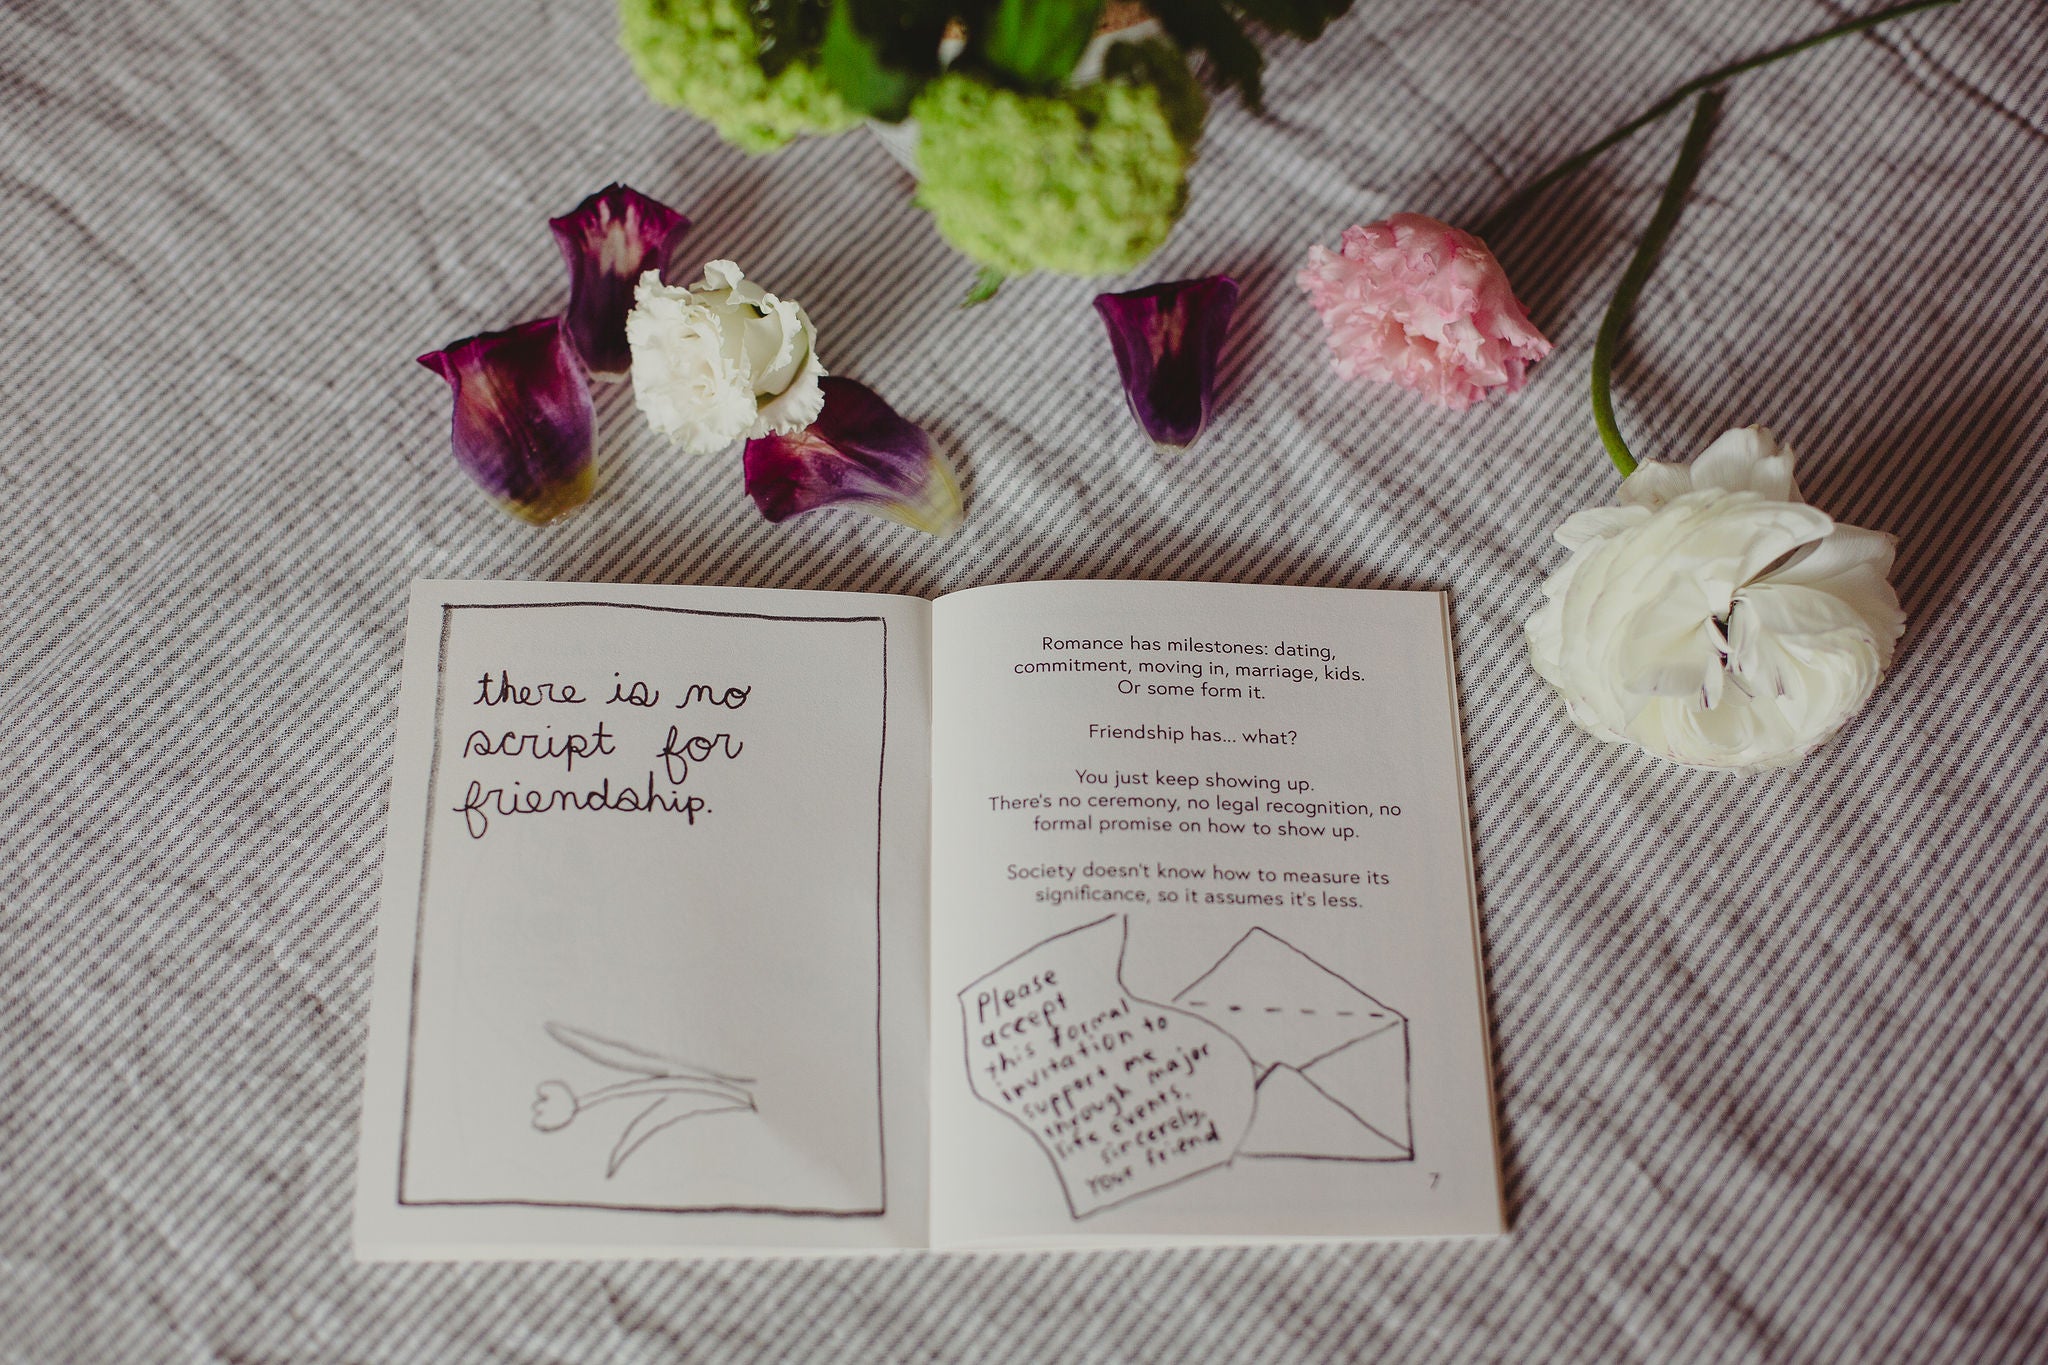 there is no
script for
friendship.
Romance has milestones: dating,
commitment, moving in, marriage, kids.
Or some form it.
Friendship has... what?
You just keep showing up.
There's no ceremony, no legal recognition, no
formal promise on how to show up.
Society doesn't know how to measure its
significance, so it assumes it's less.
Please
accept
this formal
invitation to
support me
through major
life events.
sincerely,
your friend
7